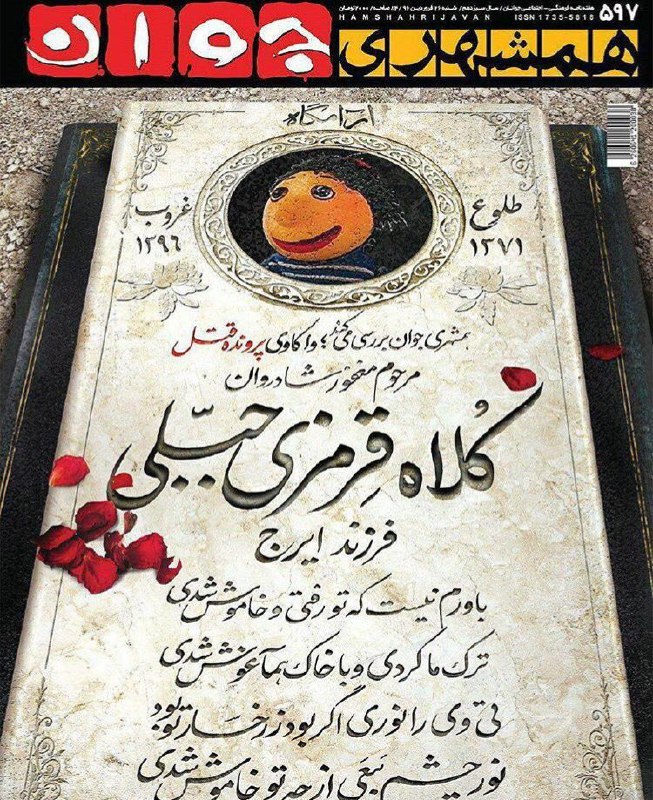 هفته‌نامه فرهنگی-اجتماعی جوانان / سال سیزدهم / شنبه ۲۶ فروردین ۹۶
۵۹۷
HAMSHAHRIJAVAN ISSN 1735-5818
همشهری جوان
آرامگاه
طلوع
۱۳۷۱
غروب
۱۳۹۶
همشهری جوان بررسی می‌کند؛ واکاوی پرونده قتل
مرحوم مغفور شادروان
کُلاه قِرمزی جبلّی
فرزند ایرج
باورم نیست که تو رفتی و خاموش شدی
ترک ما کردی و با خاک هم‌آغوش شدی
تی وی را نوری اگر بود ز رخسار تو بود
نور چشم نبَعی از چه تو خاموش شدی